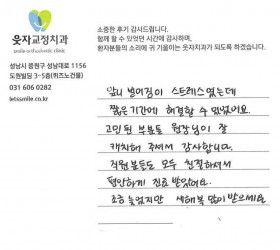 웃자교정치과
smile orthodontic clinic
성남시 중원구 성남대로 1156
도원빌딩 3~5층(위즈노건물)
031 606 0282
letssmile.co.kr
소중한 후기 감사드립니다.
함께 할 수 있었던 시간에 감사하며,
환자분들의 소리에 귀 기울이는 웃자치과가 되도록 하겠습니다.
앞니 벌어짐이 스트레스였는데
짧은 기간에 해결할 수 있었어요.
고민된 부분들 원장님이 잘
캐치해 주셔서 감사합니다.
직원분들도 모두 친절하셔서
편안하게 진료 받았어요.
조금 늦었지만 새해복 많이 받으세요